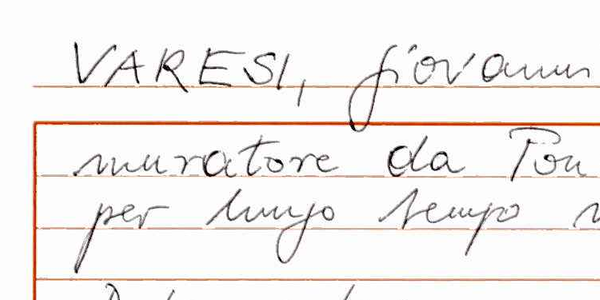 VARESI, Giovanni
muratore da
per lungo tempo